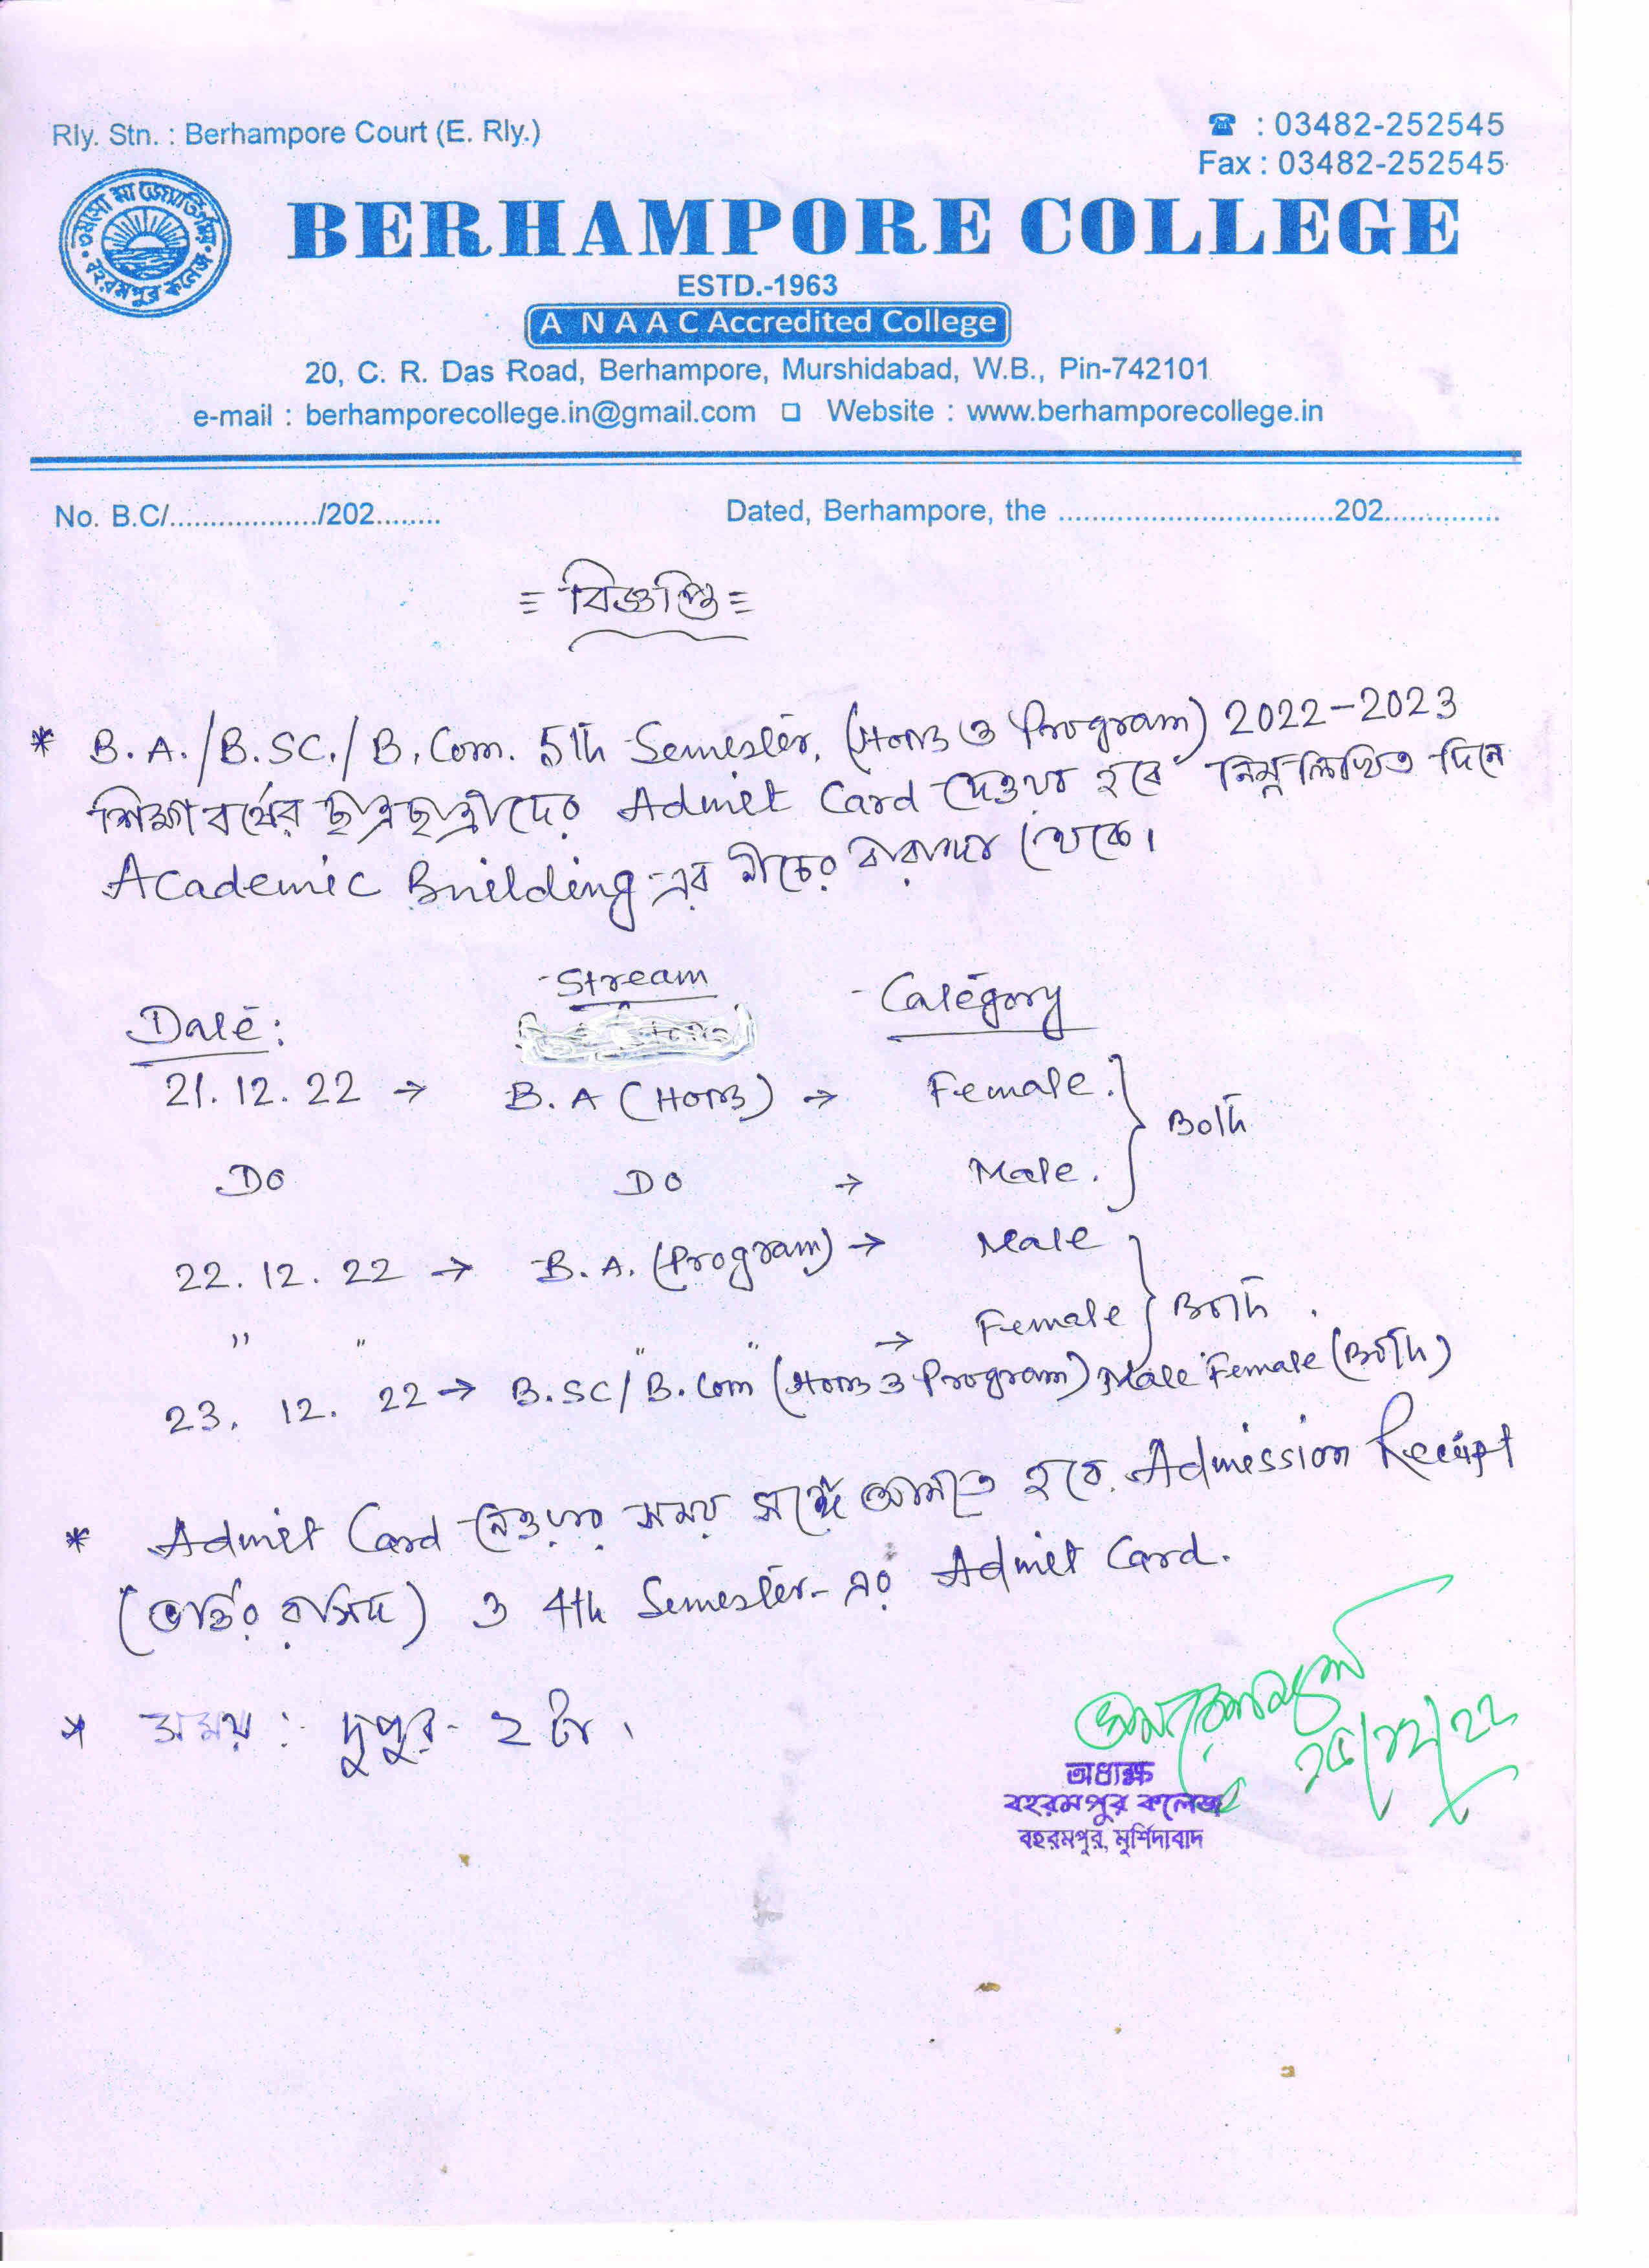 Rly. Stn. : Berhampore Court (E. Rly.)
☎ : 03482-252545
Fax : 03482-252545
বহরমপুর কলেজ
BERHAMPORE COLLEGE
ESTD.-1963
A NAAC Accredited College
20, C. R. Das Road, Berhampore, Murshidabad, W.B., Pin-742101
e-mail : berhamporecollege.in@gmail.com □ Website : www.berhamporecollege.in
No. B.C/................../202........ Dated, Berhampore, the .................................202..............
= বিজ্ঞপ্তি =
* B.A./B.SC./B.Com. 5th Semester. (Hons ও Program) 2022-2023
শিক্ষাবর্ষের ছাত্রছাত্রীদের Admit Card দেওয়া হবে নিম্নলিখিত দিনে
Academic Building-এর নীচের বারান্দা থেকে।
Date: Stream Category
21.12.22 → B.A (Hons) → Female. } Both
Do Do → Male.
22.12.22 → B.A. (Program) → Male } Both.
" " " " → Female
23.12.22 → B.SC/B.Com (Hons ও Program) Male Female (Both)
* Admit Card নেওয়ার সময় সঙ্গে আনতে হবে. Admission Receipt
(ভর্তির রসিদ) ও 4th Semester-এর Admit Card.
* সময় : দুপুর - ২ টা।
অধ্যক্ষ
বহরমপুর কলেজ
বহরমপুর, মুর্শিদাবাদ